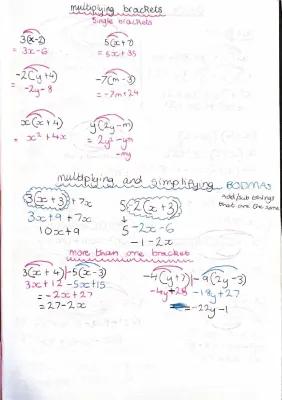 multiplying brackets
Single brackets
3(x-2)
= 3x-6
5(x+7)
= 5x+35
-2(y+4)
= -2y-8
-7(m-3)
= -7m+24
x(x+4)
= x²+4x
y(2y-m)
= 2y²-ym
-my
multiplying and simplifying BODMAS
add/sub things
that are the same
3(x+3)+7x
3x+9+7x
10x+9
5-2(x+3)
5-2x-6
-1-2x
more than one bracket
3(x+4)-5(x-3)
3x+12-5x+15
= -2x+27
= 27-2x
-4(y+7)-9(2y-3)
-4y+28-18y+27
= -22y-1